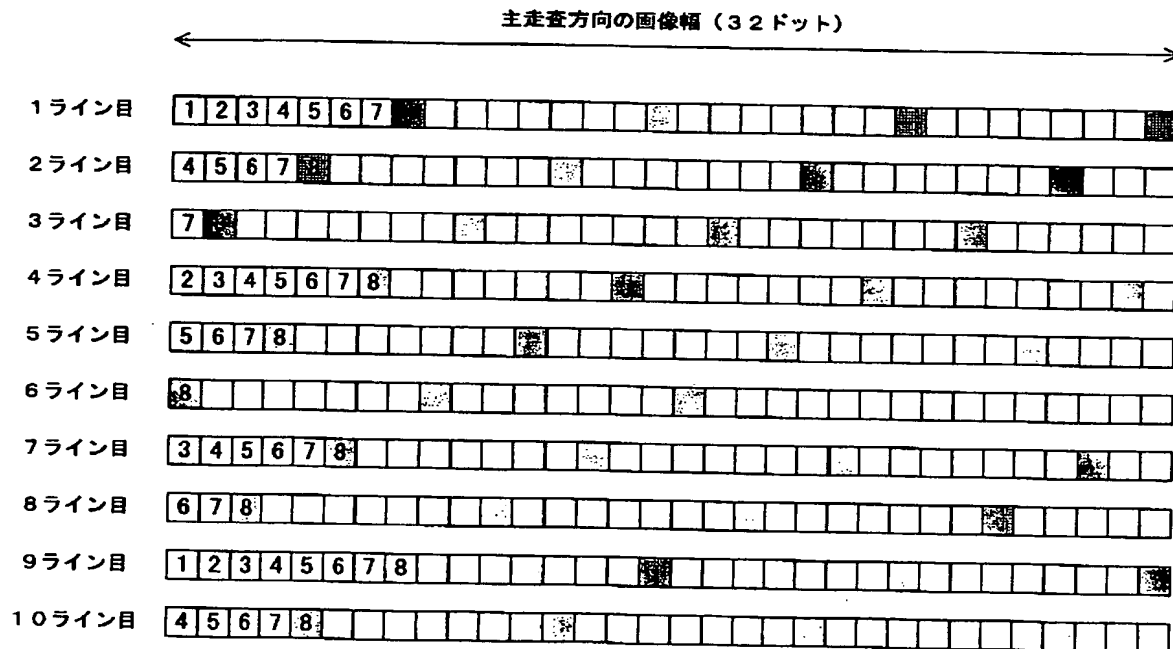 主走査方向の画像幅（３２ドット）
１ライン目 1 2 3 4 5 6 7
２ライン目 4 5 6 7
３ライン目 7
４ライン目 2 3 4 5 6 7 8
５ライン目 5 6 7 8
６ライン目 8
７ライン目 3 4 5 6 7 8
８ライン目 6 7 8
９ライン目 1 2 3 4 5 6 7 8
１０ライン目 4 5 6 7 8